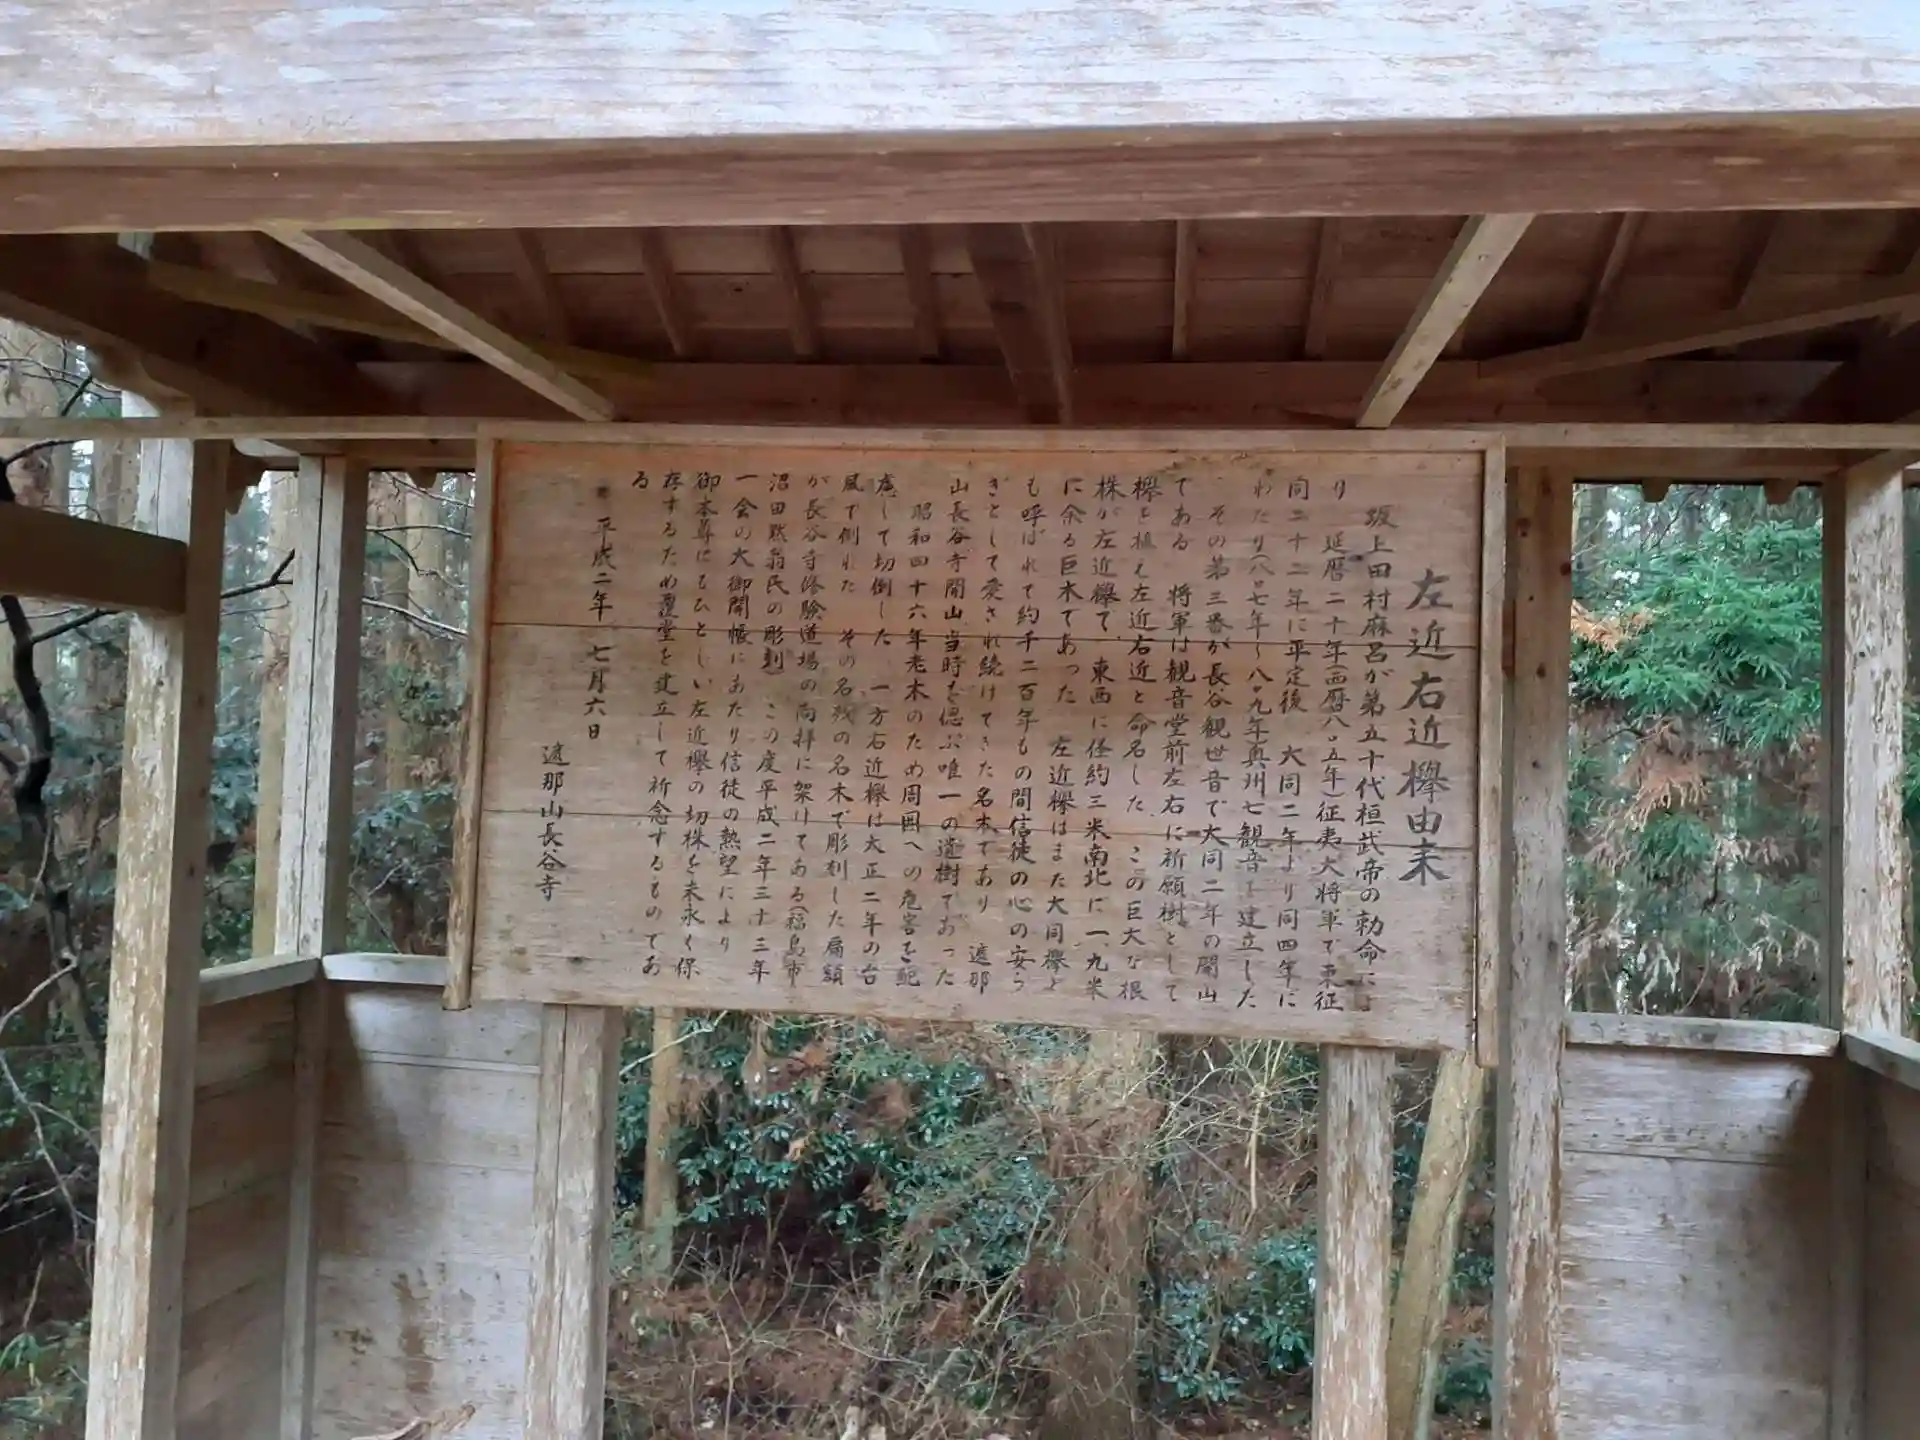 左近右近欅由来
坂上田村麻呂が第五十代桓武帝の勅命によ
り 延暦二十年(西暦八〇五年)征夷大将軍で東征
同二十二年に平定後 大同二年より同四年に
わたり(八〇七年〜八〇九年奥州七観音を建立した
その第三番が長谷観世音で大同二年の開山
である 将軍は観音堂前左右に祈願樹として
欅を植え左近右近と命名した この巨大な根
株が左近欅で 東西に径約三米南北に一、九米
に余る巨木であった 左近欅はまた大同欅と
も呼ばれて約千二百年もの間信徒の心の安ら
ぎとして愛され続けてきた名木であり 遮那
山長谷寺開山当時を偲ぶ唯一の遺樹であった
昭和四十六年老木のため周囲への危害を配
慮して切倒した 一方右近欅は大正二年の台
風で倒れた その名残の名木で彫刻した扁額
が長谷寺修験道場の向拝に架けてある(福島市
沼田黙翁氏の彫刻) この度平成二年三十三年
一会の大御開帳にあたり信徒の熱望により
御本尊にもひとしい左近欅の切株を末永く保
存するため覆堂を建立して祈念するものであ
る
平成二年 七月六日
遮那山長谷寺